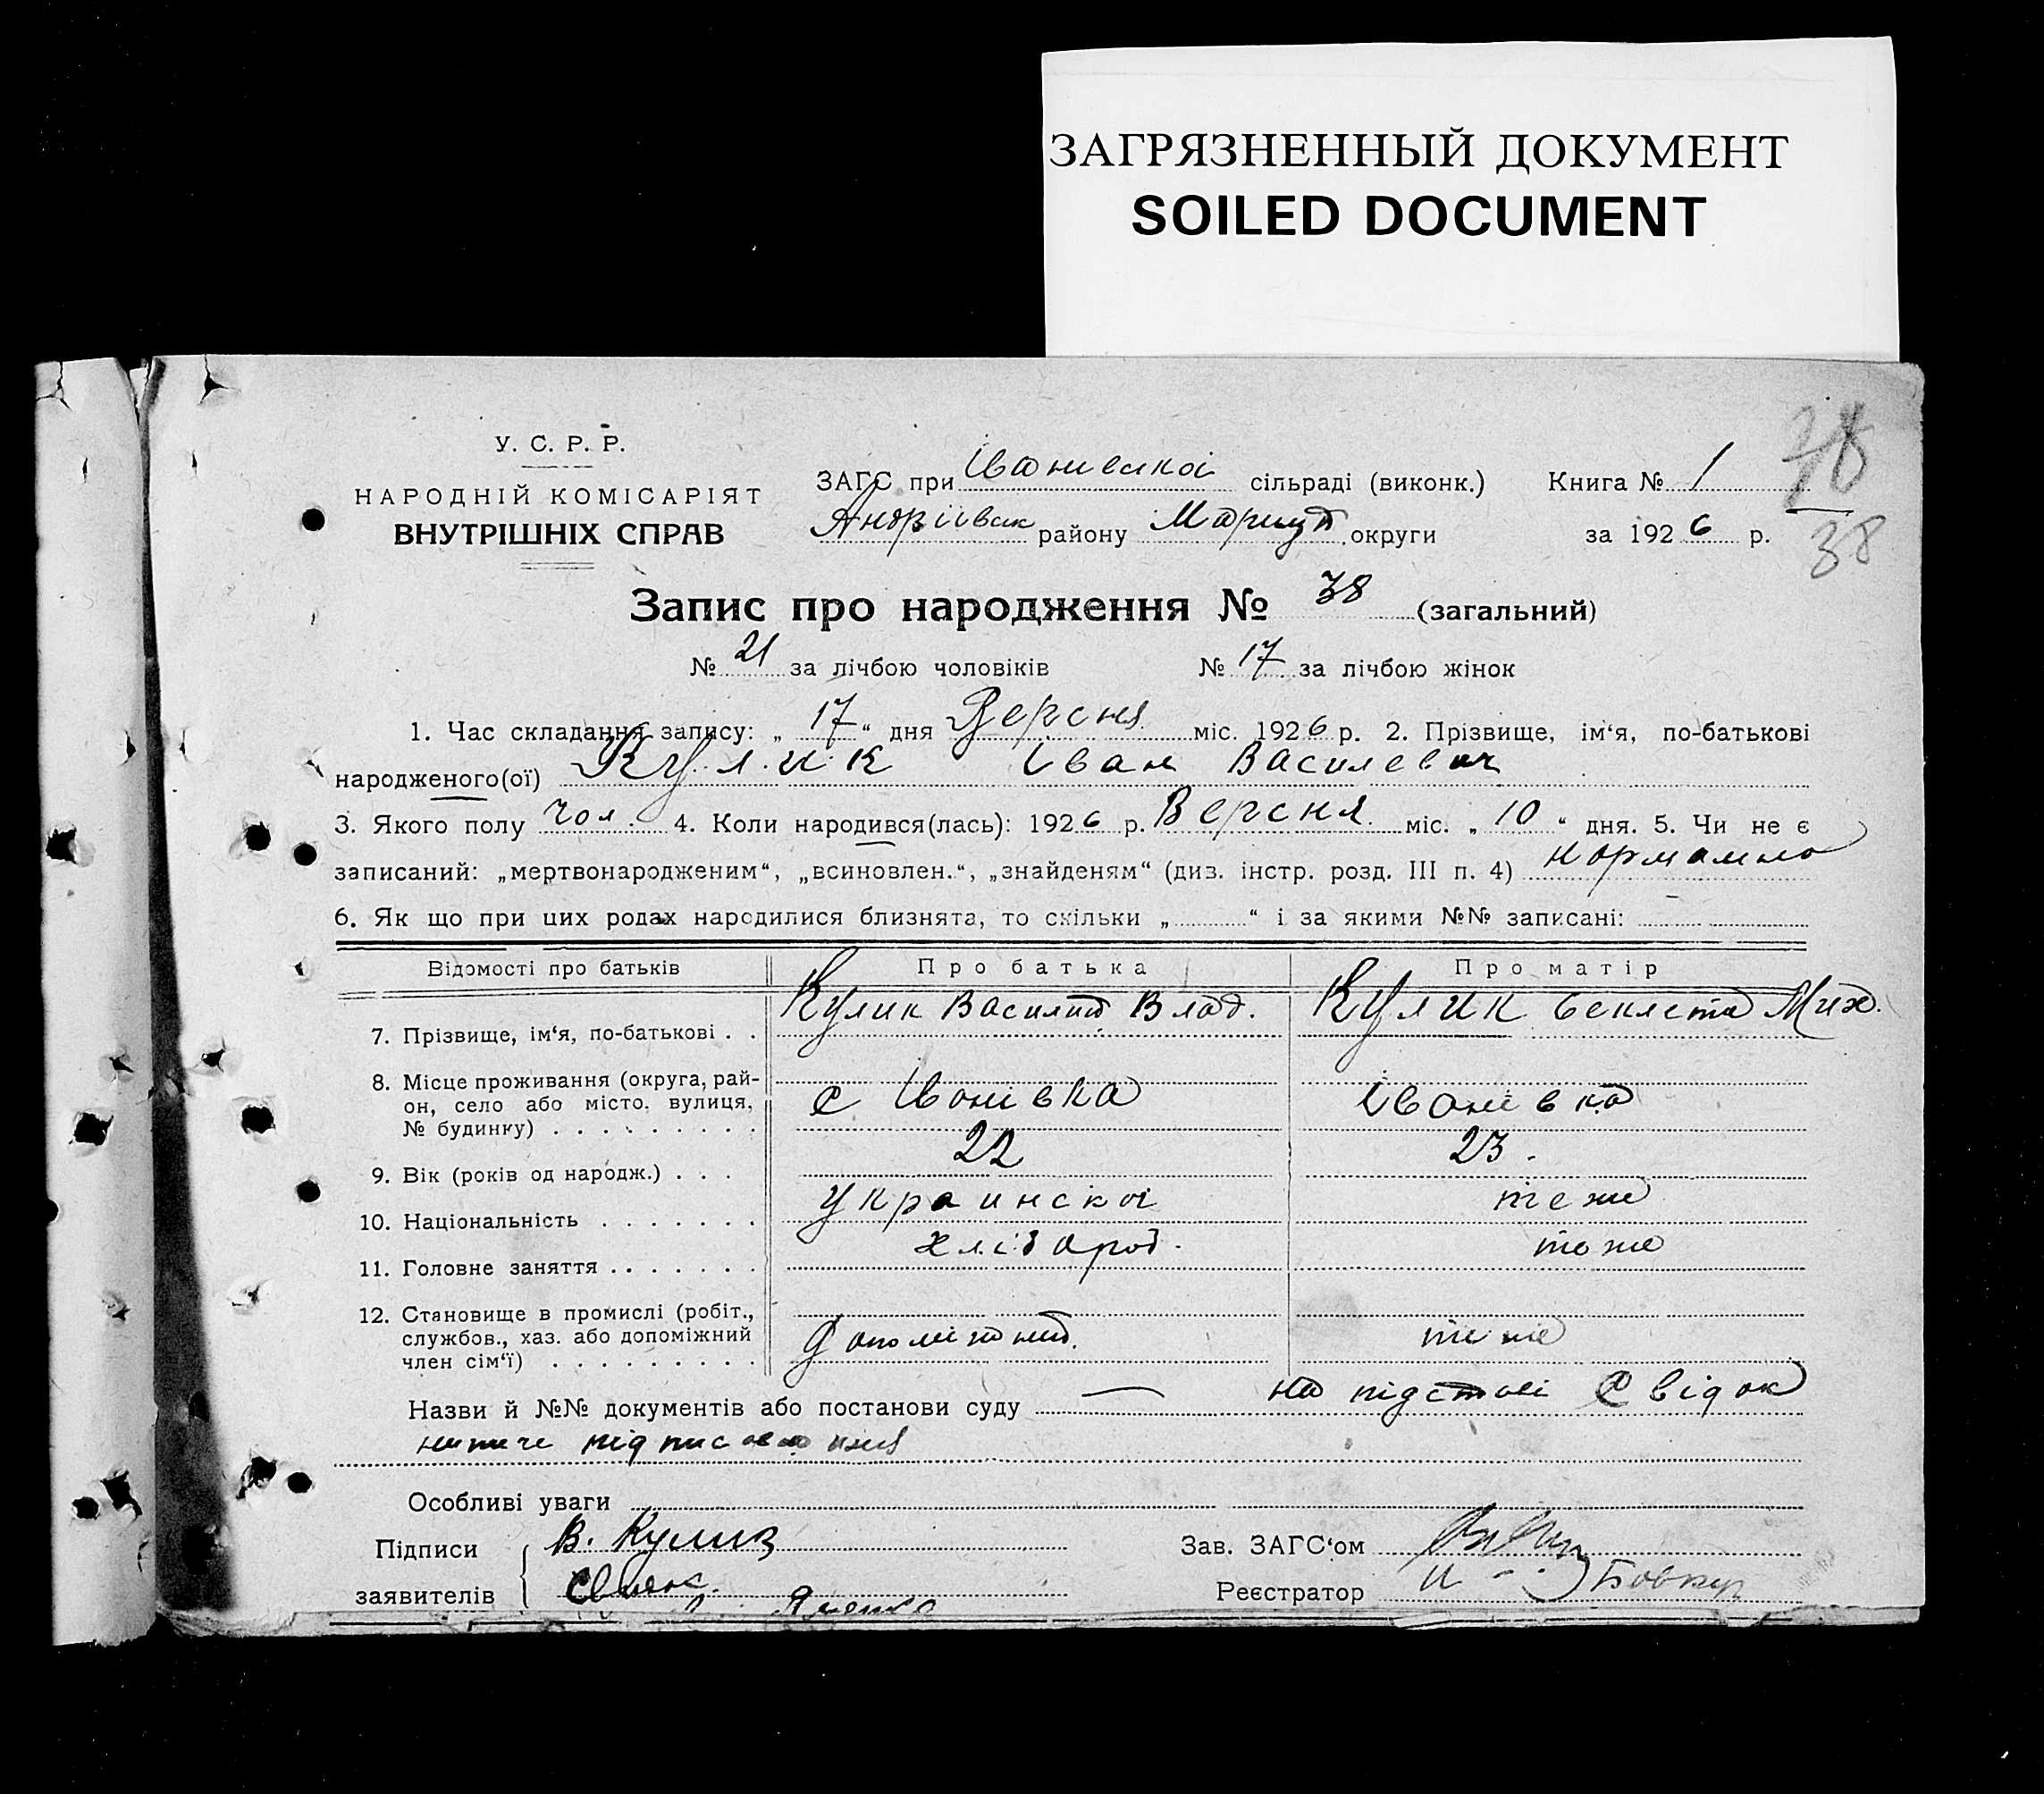 ЗАГРЯЗНЕННЫЙ ДОКУМЕНТ
SOILED DOCUMENT
У. С. Р. Р.
НАРОДНІЙ КОМІСАРІЯТ
ВНУТРІШНІХ СПРАВ
ЗАГС при Іванивскоі сільраді (виконк.) Книга № 1
Андріівск району Маріуп. округи за 1926 р.
38
38
Запис про народження № 38 (загальний)
№ 21 за лічбою чоловіків № 17 за лічбою жінок
1. Час складання запису: „17“ дня Версня міс. 1926 р. 2. Прізвище, ім'я, по-батькові
народженого(ої) Кулик Іван Василевич
3. Якого полу чол. 4. Коли народився(лась): 1926 р. Версня міс. „10“ дня. 5. Чи не є
записаний: „мертвонародженим“, „всиновлен.“, „знайденям“ (див. інстр. розд. III п. 4) нормально
6. Як що при цих родах народилися близнята, то скільки „ “ і за якими №№ записані:
Відомості про батьків Про батька Про матір
7. Прізвище, ім'я, по-батькові . . Кулик Василий Влад. Кулик Мих.
8. Місце проживання (округа, рай-
он, село або місто, вулиця, с Іванівка Іванівка
№ будинку) . . . . . . . . .
9. Вік (років од народж.) . . . 22 23.
10. Національність . . . . . . . Украинскоі теже
11. Головне заняття . . . . . . . хлібороб. тоже
12. Становище в промислі (робіт.,
службов., хаз. або допоміжний Допоміжний. теже
член сім'ї) . . . . . . . . .
Назви й №№ документів або постанови суду — на підставі Свідок
нижче підписавшихся
Особливі уваги
Підписи В. Кулик Зав. ЗАГС'ом
заявителів Реєстратор